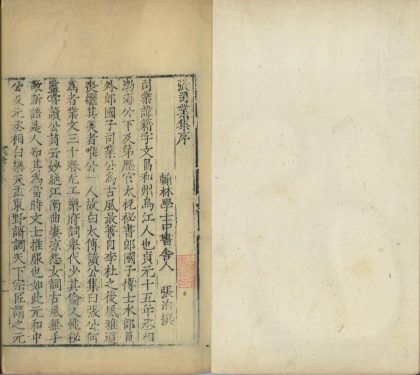 張司業集序
翰林學士中書舍人 張洎撰
司業諱籍字文昌和州烏江人也貞元十五年丞相
渤海公下及第歷官太祝秘書郎國子博士水部員
外郎國子司業公為古風最善自李杜之後風雅道
喪繼其美者唯公一人故白太傅讀公集曰張公何
為者業文三十春尤工樂府詞舉代少其倫又姚秘
監嘗讀公詩云妙絕江南曲凄涼怨女詞古風無手
敵新語是人知其為當時文士推服也如此元和中
公及元丞相白樂天孟東野歌詞天下宗匠謂之元